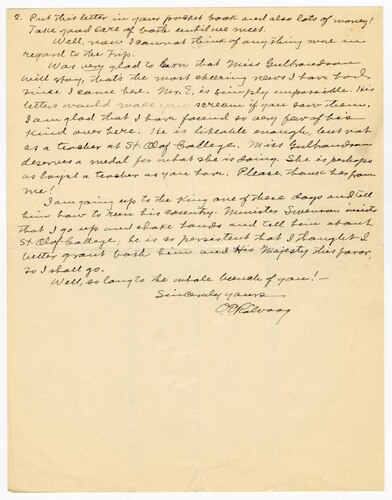 2. Put this letter in your pocket book and also lots of money!
Take good care of both until we meet.
Well, now I cannot think of anything more in
regard to the trip.
Was very glad to learn that Miss Gulbrandson
will stay, that's the most cheering news I have had
since I came here. Mr. E. is simply impossible. His
letters would make you scream if you saw them.
I am glad that I have found so very few of his
kind over here. He is likeable enough, but not
as a teacher at St. Olaf College. Miss Gulbrandson
deserves a medal for what she is doing. She is perhaps
as loyal a teacher as you have. Please, thank her from
me!
I am going up to the King one of these days and tell
him how to run his country. Minister Swenson insists
that I go up and shake hands and tell him about
St. Olaf College, he is so persistent that I thought I
better grant both him and His Majesty this favor,
so I shall go.
Well, so long to the whole bunch of you! -
Sincerely yours
O. E. Rölvaag